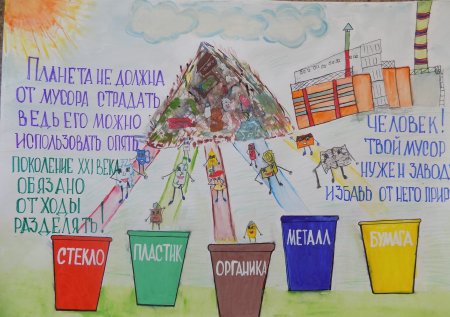 ПЛАНЕТА НЕ ДОЛЖНА
ОТ МУСОРА СТРАДАТЬ
ВЕДЬ ЕГО МОЖНО
ИСПОЛЬЗОВАТЬ ОПЯТЬ
ПОКОЛЕНИЕ XXI ВЕКА
ОБЯЗАНО
ОТХОДЫ
РАЗДЕЛЯТЬ!
ЧЕЛОВЕК!
ТВОЙ МУСОР
НУЖЕН ЗАВОДУ
ИЗБАВЬ ОТ НЕГО
СТЕКЛО
ПЛАСТИК
ОРГАНИКА
МЕТАЛЛ
БУМАГА